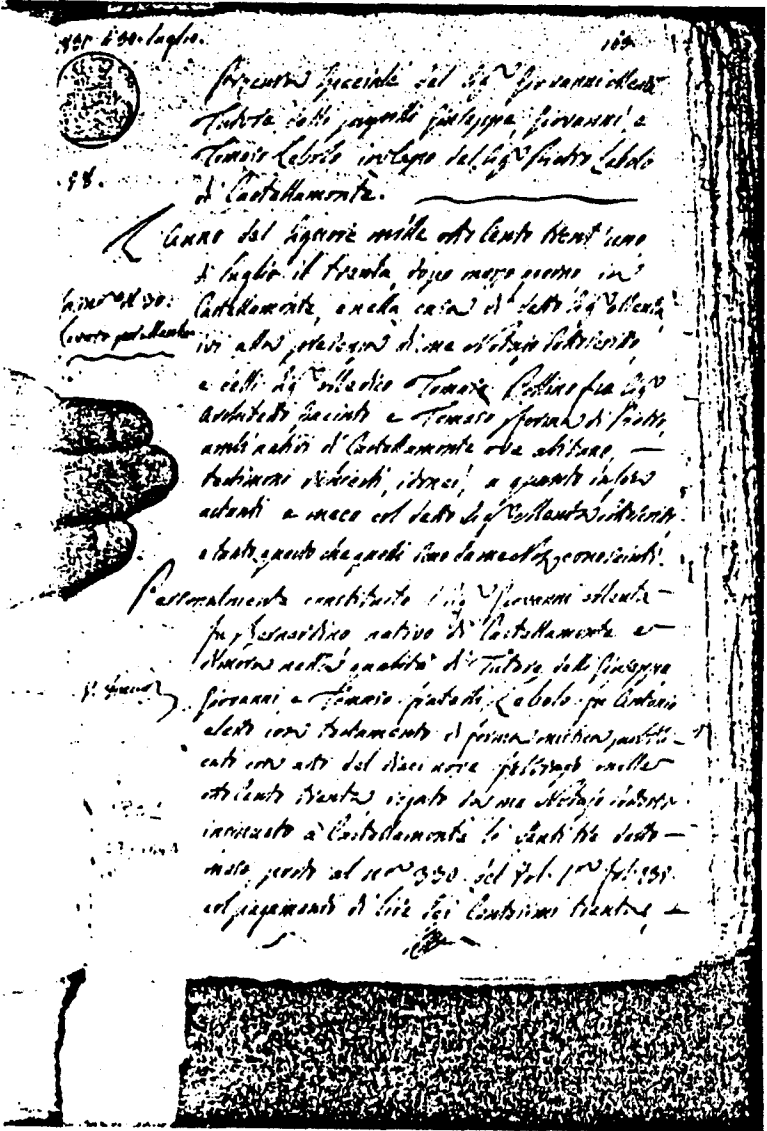 1831 il 30. luglio.
169
Procura speciale del Sig.r Giovanni Menta
Tutore delli pupilli Giuseppe, Giovanni, e
Tomaso Labolo in capo del Sig.r Pietro Labolo
di Castellamonte.
58.
L'anno del Signore mille otto cento trent'uno
di luglio il trenta, dopo mezzo giorno in
Castellamonte, e nella casa di detto Sig.r Menta
ivi alla presenza di me Notajo sottoscritto
e delli Sig.r Medico Tomaso Pollino fu Sig.r
Architetto Giacinto e Tomaso Sforma di Pietro
ambi nativi di Castellamonte ove abitano, —
testimoni richiesti, idonei, a quanto infra
astanti e meco col detto Sig.r Menta sottoscritti
e tanto questo che quelli sono da me Not.o conosciuti.
Personalmente constituito il Sig.r Giovanni Menta —
fu Bernardino nativo di Castellamonte e
dimora nella qualità di Tutore delli Giuseppe
Giovanni, e Tomaso fratelli Labolo fu Antonio
eletto con testamento di forma mistica pubbli-
cati con atti del dieci nove febbrajo mille
otto cento trenta rogato da me Notajo sottoscritto
insinuato a Castellamonte li venti tre detto —
mese scritto al n.o 330. del Vol. 1.o fol. 231.
col pagamento di lire sei centesimi trenta, —